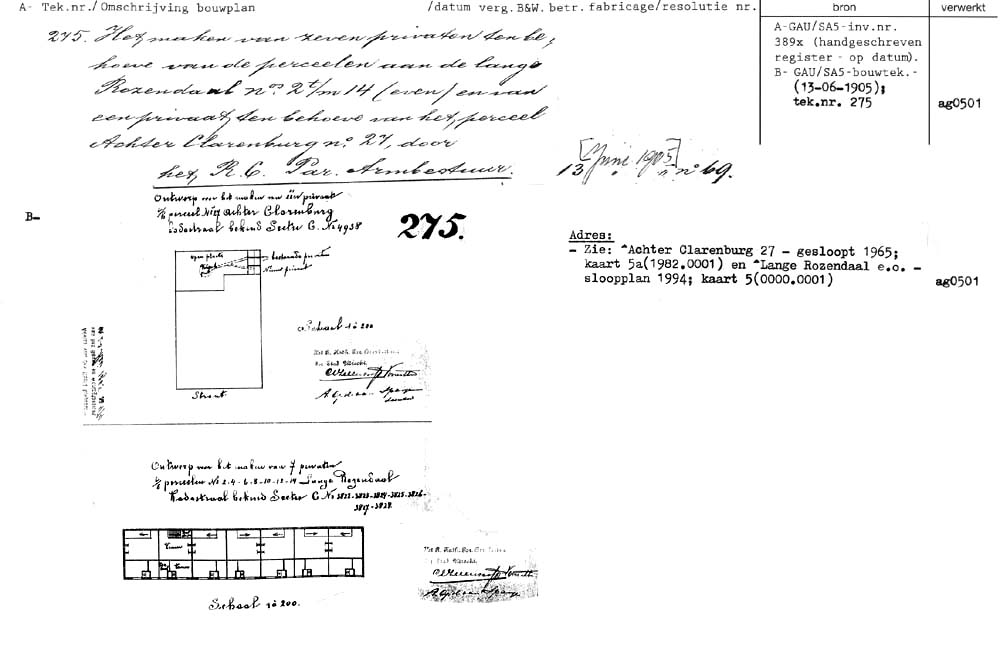 A- Tek.nr./Omschrijving bouwplan /datum verg.B&W. betr. fabricage/resolutie nr.
bron
verwerkt
275. Het maken van zeven privaten ten be-
hoeve van de perceelen aan de lange
Rozendaal nos 2 t/m 14 (even) en van
een privaat ten behoeve van het perceel
Achter Clarenburg no. 27, door
het R.C. Par. Armbestuur.
[Juni 1905]
13 " " no 69.
A-GAU/SA5-inv.nr.
389x (handgeschreven
register - op datum).
B- GAU/SA5-bouwtek.-
(13-06-1905);
tek.nr. 275
ag0501
B-
Ontwerp voor het maken van één privaat
perceel No 27 Achter Clarenburg
Kadastraal bekend Sectie C. No 4938
275.
open plaats
bestaande privaten
Nieuw privaat
Schaal 1 à 200
Straat
Adres:
- Zie: ^Achter Clarenburg 27 - gesloopt 1965;
kaart 5a(1982.0001) en ^Lange Rozendaal e.o. -
sloopplan 1994; kaart 5(0000.0001)
ag0501
Ontwerp voor het maken van 7 privaten
perceelen No 2-4-6-8-10-12-14 Lange Rozendaal
Kadastraal bekend Sectie C No 3822-3823-3824-3825-3826-
3827-3828
Schaal 1 à 200.